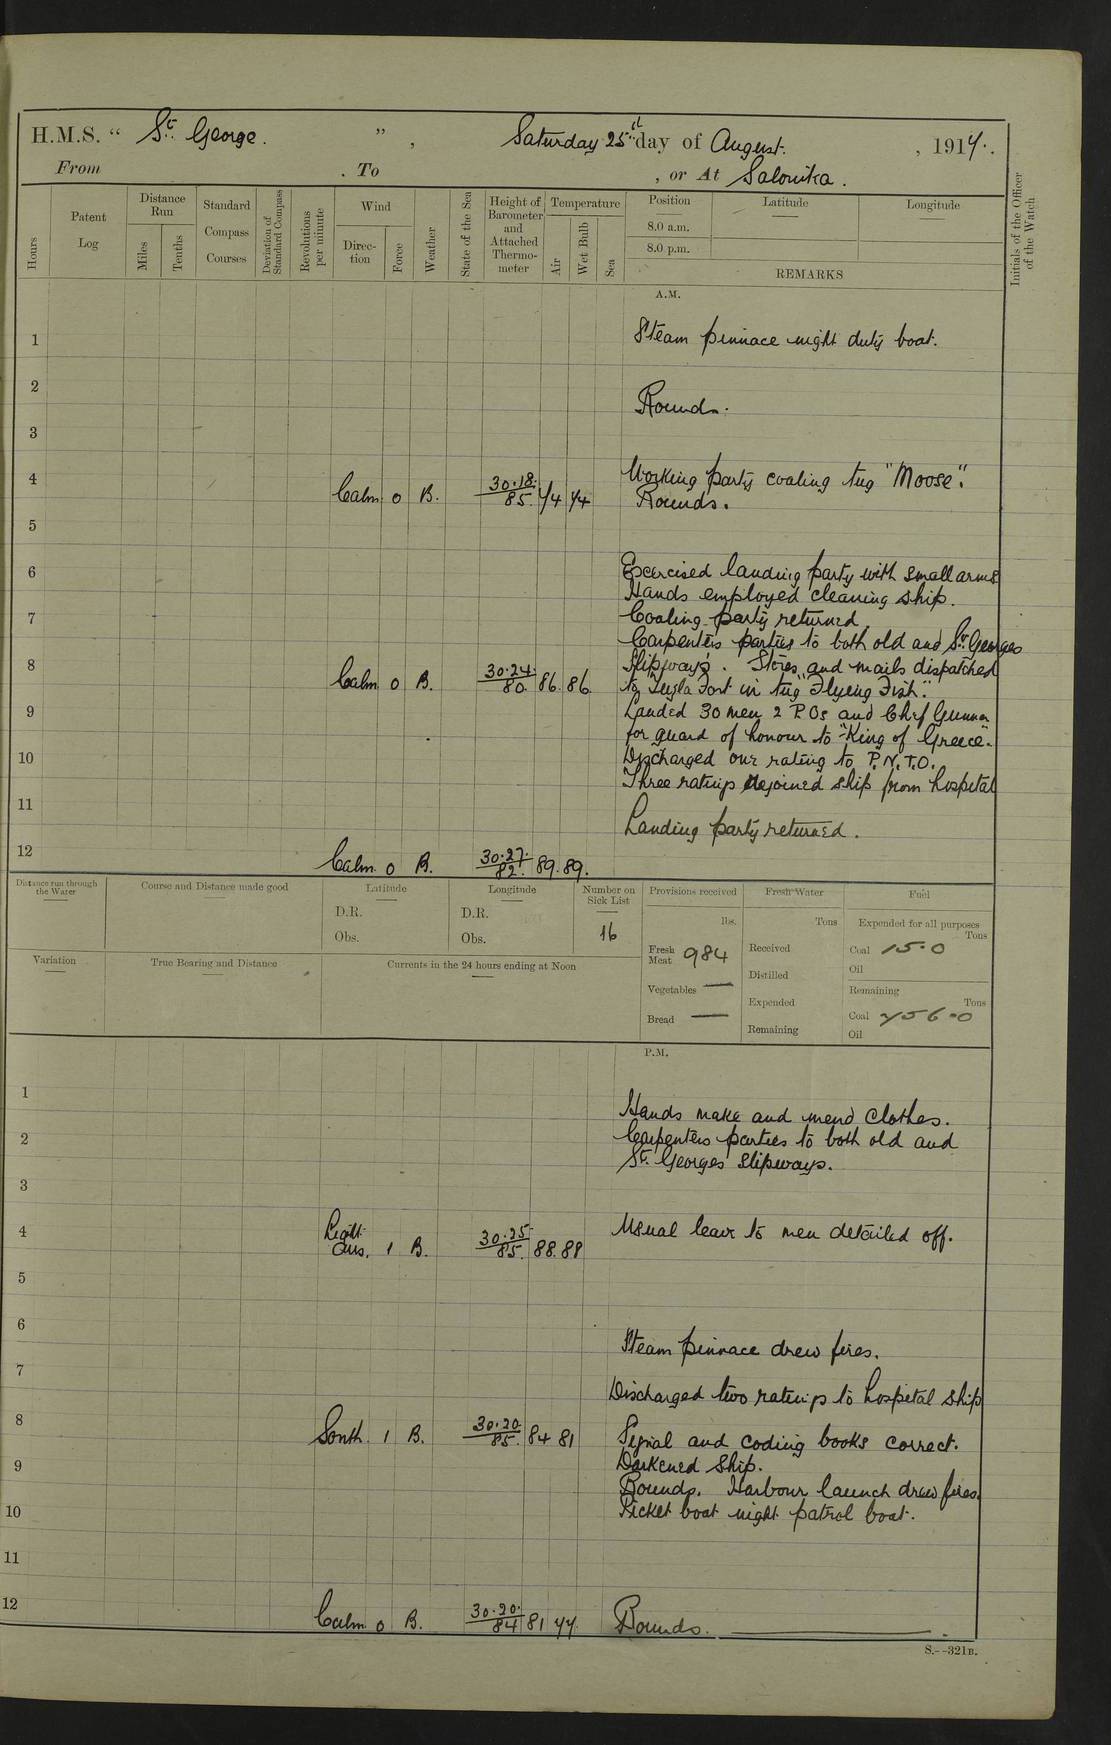 H.M.S. “ St. George. ” , Saturday 25th day of August. , 1917.
From . To , or At Salonika.
Hours
Patent Log
Distance Run
Miles
Tenths
Standard Compass Courses
Deviation of Standard Compass
Revolutions per minute
Wind
Direction
Force
Weather
State of the Sea
Height of Barometer and Attached Thermometer
Temperature
Air
Wet Bulb
Sea
Position
Latitude
Longitude
8.0 a.m.
8.0 p.m.
REMARKS
Initials of the Officer of the Watch
A.M.
1 Steam pinnace night duty boat.
2
Rounds.
3
4 Working party coaling tug "Moose".
Calm 0 B. 30.18. 85. 74 74 Rounds.
5
6 Exercised landing party with small arms
Hands employed cleaning ship.
7 Coaling party returned.
Carpenters parties to both old and St. Georges
8 Slipways. Stores and mails dispatched
Calm 0 B. 30.24. 80. 86. 86. to Tuzla Fort in tug "Flying Fish".
9 Landed 30 men 2 POs and Chf Gunner
for guard of honour to "King of Greece".
10 Discharged one rating to P.N.T.O.
Three ratings rejoined ship from hospital
11
Landing party returned.
12
Calm 0 B. 30.27. 82. 89. 89.
Distance run through the Water
Course and Distance made good
Latitude
D.R.
Obs.
Longitude
D.R.
Obs.
Number on Sick List
16
Provisions received
lbs.
Fresh Meat 984
Vegetables —
Bread —
Fresh Water
Tons
Received
Distilled
Expended
Remaining
Fuel
Expended for all purposes
Tons
Coal 15.0
Oil
Remaining
Tons
Coal 756.0
Oil
Variation
True Bearing and Distance
Currents in the 24 hours ending at Noon
P.M.
1
Hands make and mend clothes.
2 Carpenters parties to both old and
St. Georges slipways.
3
4 Usual leave to men detailed off.
Light airs. 1 B. 30.25. 85. 88. 88
5
6
Steam pinnace drew fires.
7
Discharged two ratings to hospital ship
8
South. 1 B. 30.20. 85. 84 81 Signal and coding books correct.
9 Darkened ship.
Rounds. Harbour launch drew fires.
10 Picket boat night patrol boat.
11
12
Calm 0 B. 30.20. 84 81 77. Rounds.
S.—321B.